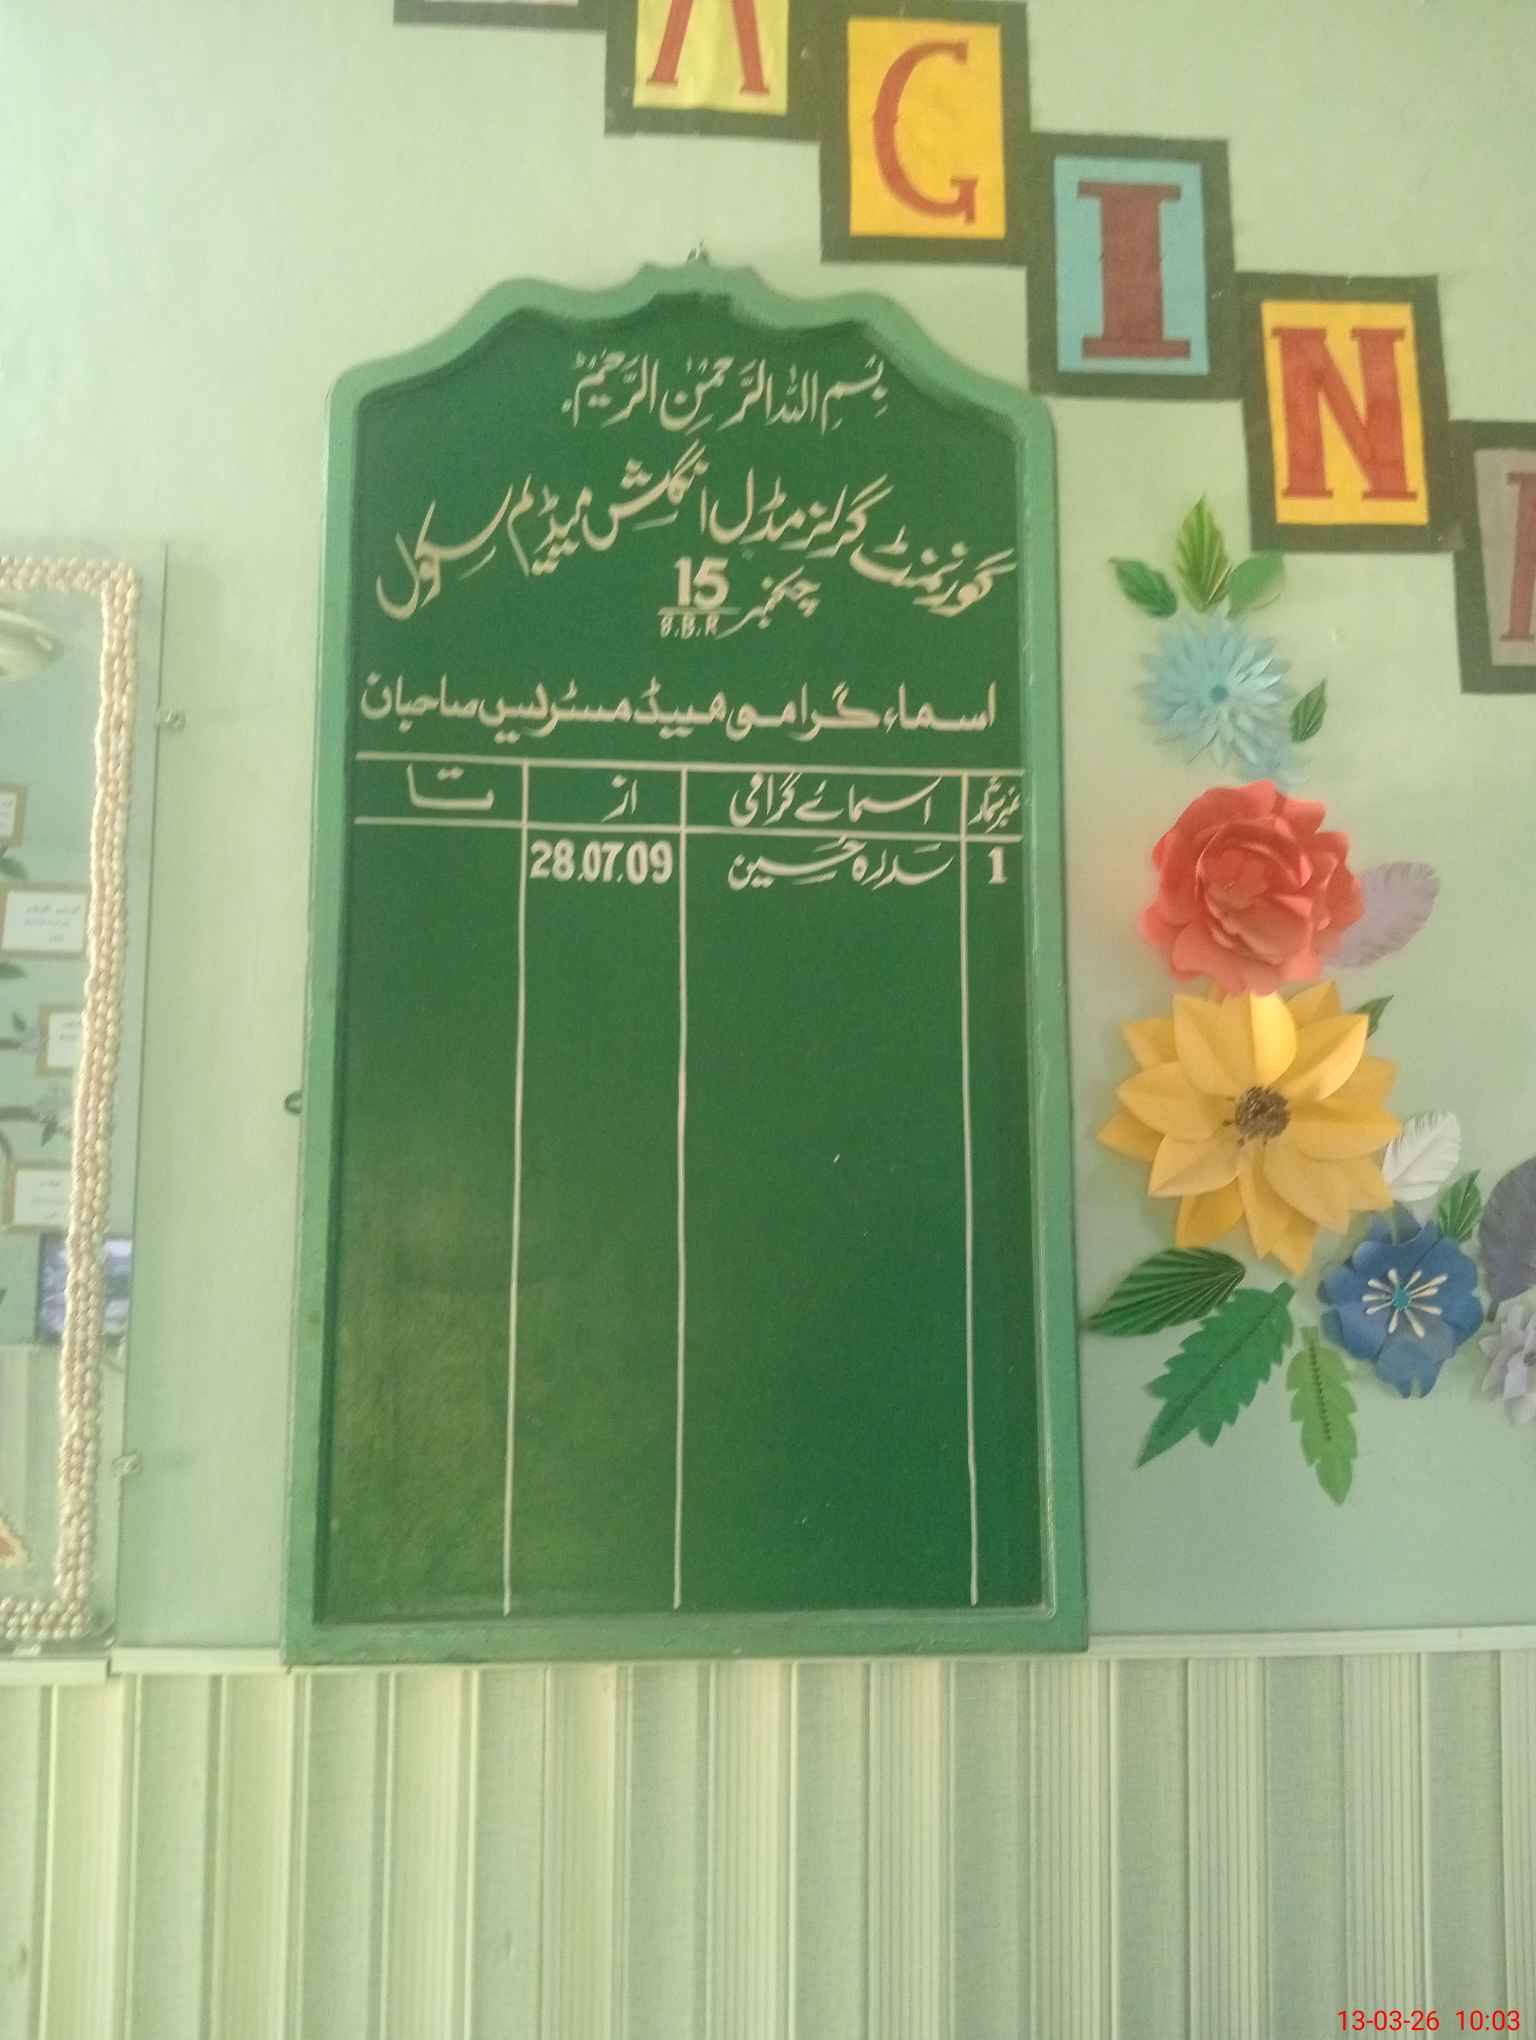 A
G
I
N
بِسْمِ اللہ الرَّحْمٰنِ الرَّحِیْمْ
گورنمنٹ گرلز مڈل انگلش میڈیم سکول
چکنمبر 15
8.B.R
اسماء گرامی ہیڈ مسٹریس صاحبان
نمبر شمار اسمائے گرامی از تا
1 سدرہ حُسین 28.07.09
13-03-26 10:03